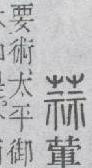 蒜葷
要術太平御